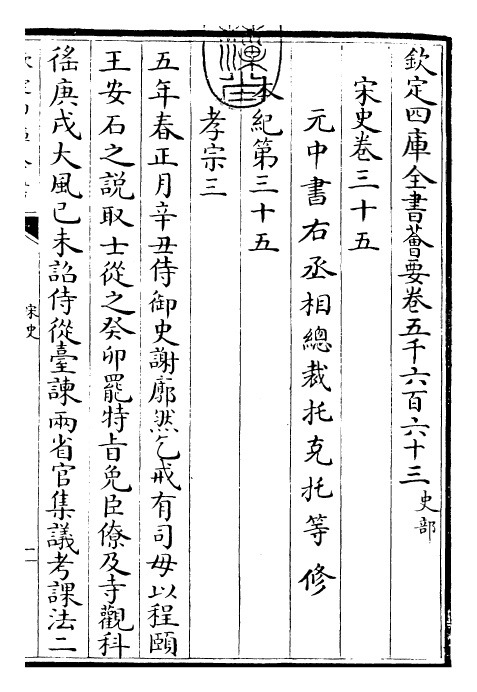 欽定四庫全書薈要卷五千六百六十三 史部
宋史卷三十五
元中書右丞相總裁托克托等修
本紀第三十五
孝宗三
五年春正月辛丑侍御史謝廓然乞戒有司毋以程頤
王安石之說取士從之癸卯罷特旨免臣僚及寺觀科
徭庚戌大風己未詔侍從臺諫兩省官集議考課法二
宋史